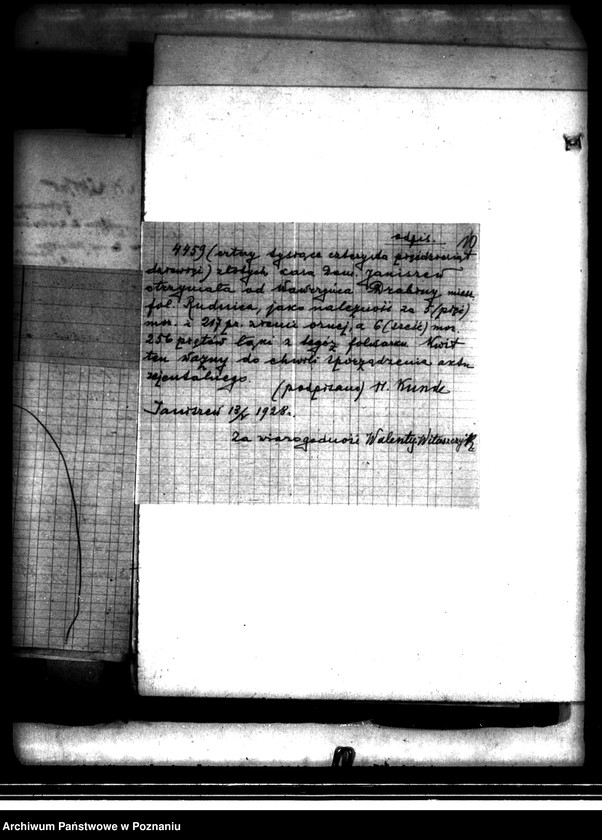 odpis. 10
4459 (cztery tysiące czterysta pięćdziesiąt
dziewięć) złotych kasa Dom. Janiszew
otrzymała od Wawrzyńca Drabiny miesz.
fol. Rudnica, jako należność za 5 (pięć)
mor. i 217 pr. ziemi ornej, a 6 (sześć) mor.
256 prętów łąki z tegoż folwarku. Kwit
ten ważny do chwili sporządzenia aktu
rejentalnego.
(podpisano) H. Kunde
Janiszew 13/ 1928 r.
Za wiarogodność Walenty Witaszczyk
Archiwum Państwowe w Poznaniu